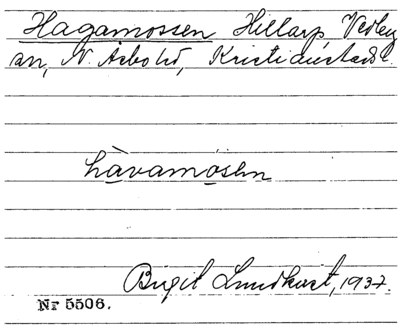 Hagamossen Hillarp Vedby
sn, N. Åsbo hd, Kristianstads l.
hàvamósen
Birgit Lundkvist, 1937.
Nr 5506.